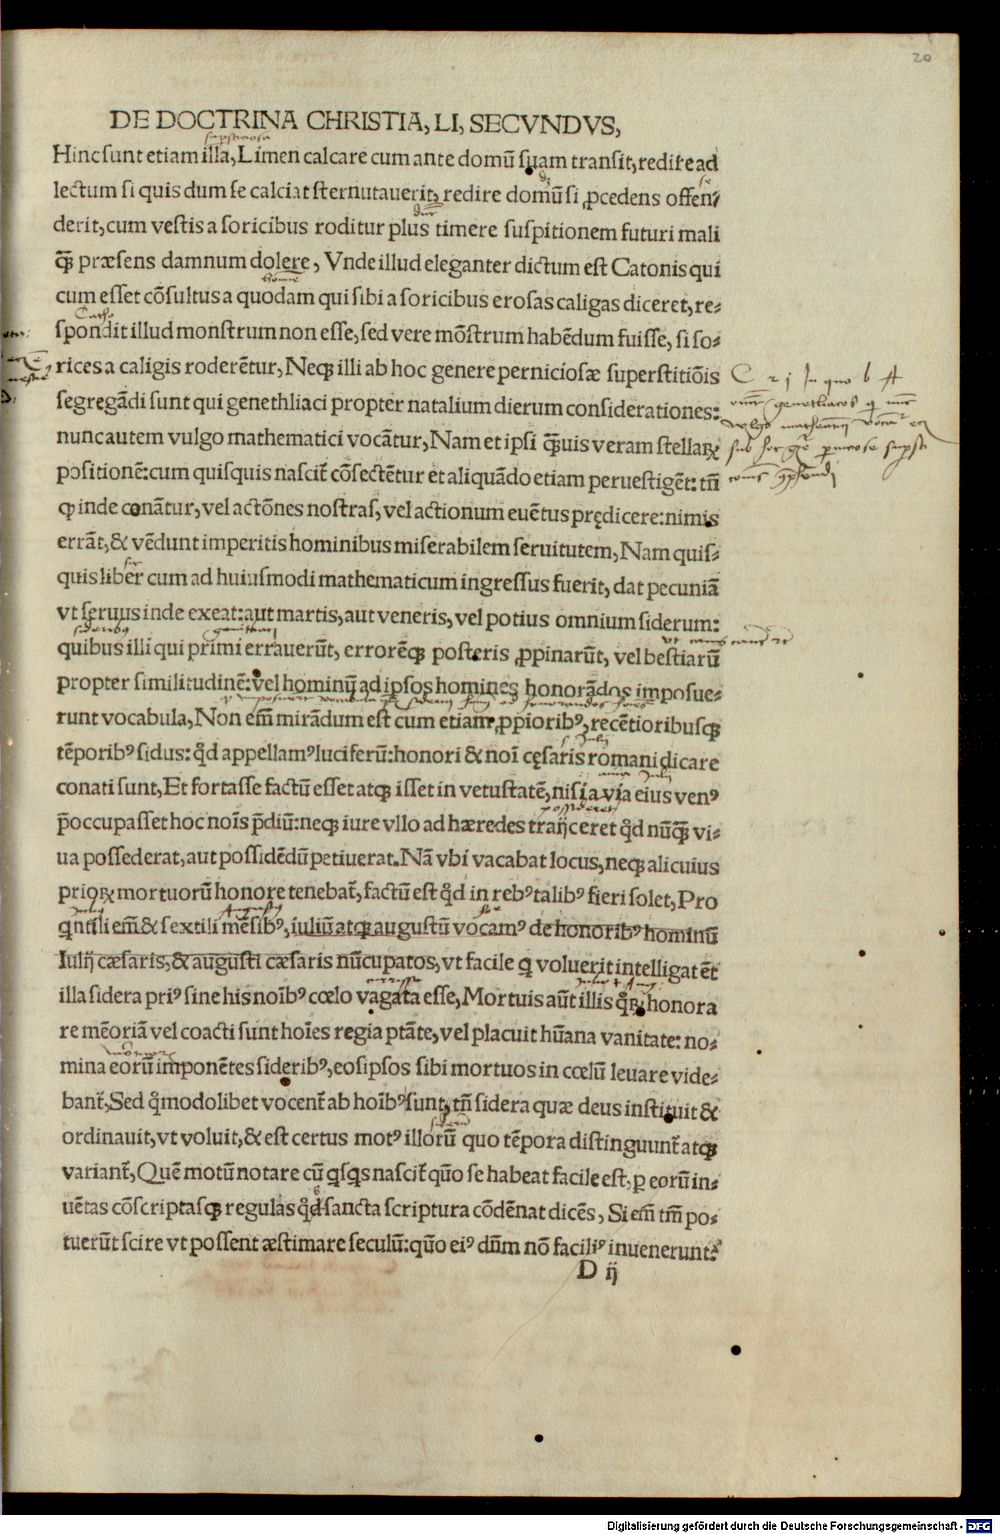 20
DE DOCTRINA CHRISTIA, LI, SECVNDVS,
Hinc sunt etiam illa, Limen calcare cum ante domū suam transit, redire ad
lectum si quis dum se calciat sternutauerit, redire domū si ꝓcedens offen-
derit, cum vestis a soricibus roditur plus timere suspitionem futuri mali
q̄ꝫ præsens damnum dolere, Vnde illud eleganter dictum est Catonis qui
cum esset cōsultus a quodam qui sibi a soricibus erosas caligas diceret, re-
spondit illud monstrum non esse, sed vere mōstrum habēdum fuisse, si so-
rices a caligis roderētur, Neqꝫ illi ab hoc genere perniciosæ superstitiōis
segregādi sunt qui genethliaci propter natalium dierum considerationes:
nunc autem vulgo mathematici vocātur, Nam et ipsi q̄ꝫuis veram stellaꝝ
positionē: cum quisquis nascit̄ cōsectētur et aliquādo etiam peruestigēt: tn̄
ꝙ inde conātur, vel actōnes nostras, vel actionum euētus prędicere: nimis
errāt, & vēdunt imperitis hominibus miserabilem seruitutem, Nam quis-
quis liber cum ad huiusmodi mathematicum ingressus fuerit, dat pecuniā
vt seruus inde exeat: aut martis, aut veneris, vel potius omnium siderum:
quibus illi qui primi errauerūt, errorēqꝫ posteris ꝓpinarūt, vel bestiarū
propter similitudinē: vel hominū ad ipsos homines honorādos imposue-
runt vocabula, Non em̄ mirādum est cum etiam ꝓpiorib⁹, recētioribusqꝫ
tēporib⁹ sidus: qd̄ appellam⁹ luciferū: honori & noī cęsaris romani dicare
conati sunt, Et fortasse factū esset atqꝫ isset in vetustatē, nisi a via eius ven⁹
p̄occupasset hoc noīs p̄diū: neqꝫ iure vllo ad hæredes traijceret qd̄ nūq̄ꝫ vi-
ua possederat, aut possidēdū petiuerat. Nā vbi vacabat locus, neqꝫ alicuius
prioꝝ mortuorū honore tenebat̄, factū est qd̄ in reb⁹ talib⁹ fieri solet, Pro
qntili em̄ & sextili mēsib⁹, iuliū atqꝫ augustū vocam⁹ de honorib⁹ hominū
Iulij cæsaris, & augusti cæsaris nūcupatos, vt facile q voluerit intelligat ēt
illa sidera pri⁹ sine his noīb⁹ cœlo vagata esse, Mortuis aūt illis qꝝ honora
re mēoriā vel coacti sunt hoīes regia ptāte, vel placuit hūana vanitate: no-
mina eorū imponētes siderib⁹, eos ipsos sibi mortuos in cœlū leuare vide-
bant̄, Sed q̄modolibet vocent̄ ab hoīb⁹ sunt, tn̄ sidera quæ deus instituit &
ordinauit, vt voluit, & est certus mot⁹ illorū quo tēpora distinguunt̄ atqꝫ
variant̄, Quē motū notare cū qsqs nascit̄ quō se habeat facile est, ꝑ eorū in-
uētas cōscriptasqꝫ regulas qd̄ sancta scriptura cōdēnat dicēs, Si em̄ tm̄ po-
tuerūt scire vt possent æstimare seculū: quō ei⁹ dn̄m nō facili⁹ inuenerunt:
D ij
Digitalisierung gefördert durch die Deutsche Forschungsgemeinschaft - DFG